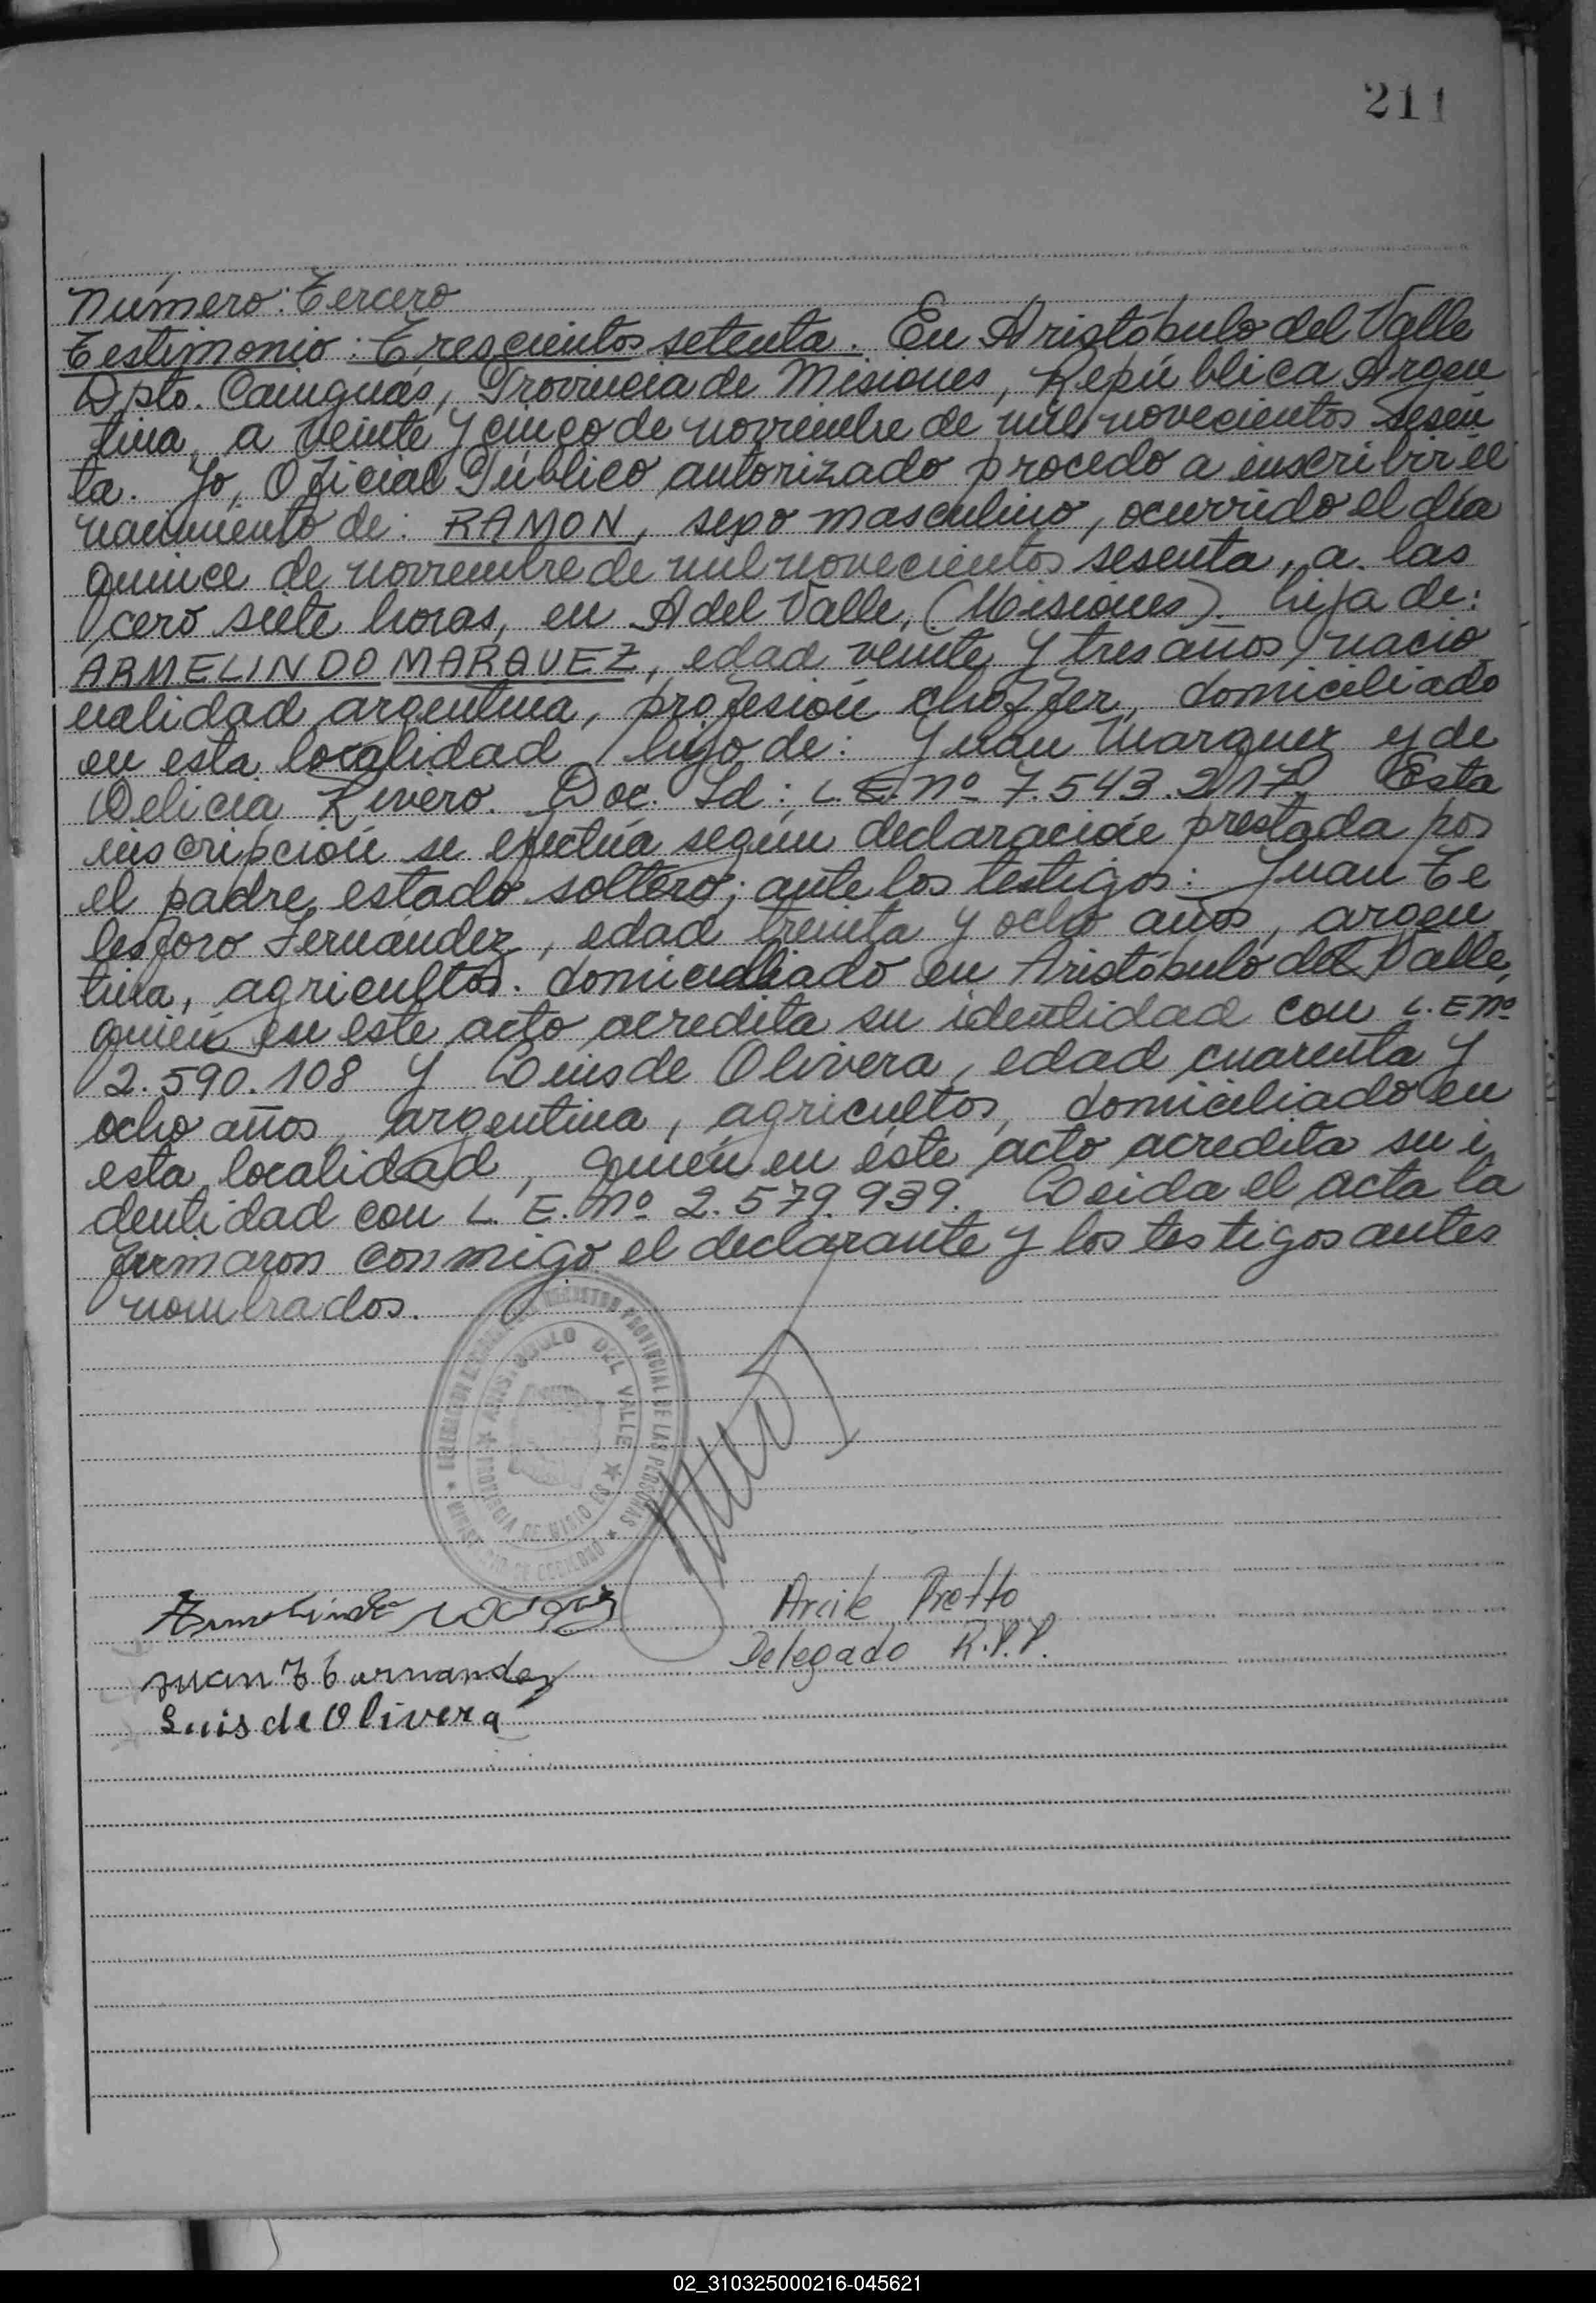 211
Número: Tercero
Testimonio: Trescientos setenta. En Aristóbulo del Valle
Dpto. Cainguás, Provincia de Misiones, República Argen
tina, a veinte y cinco de noviembre de mil novecientos sesen
ta. Yo, Oficial Público autorizado procedo a inscribir el
nacimiento de: RAMON, sexo masculino, ocurrido el día
quince de noviembre de mil novecientos sesenta, a las
cero siete horas, en A del Valle, (Misiones). hija de:
ARMELINDO MARQUEZ, edad veinte y tres años, nacio
nalidad argentina, profesión choffer, domiciliado
en esta localidad, hijo de: Juan Marquez y de
Delicia Rivero. Doc. Id: L.E. Nº 7.543.217. Esta
inscripción se efectúa según declaración prestada por
el padre, estado soltero; ante los testigos: Juan Te
lesforo Fernández, edad treinta y ocho años, argen
tina, agricultor. domiciliado en Aristóbulo del Valle,
quien en este acto acredita su identidad con L.E Nº
2.590.108 y Luis de Olivera, edad cuarenta y
ocho años, argentina, agricultor, domiciliado en
esta localidad, quien en éste acto acredita su i
dentidad con L. E. Nº 2.579.939. Leida el acta la
firmaron conmigo el declarante y los testigos antes
nombrados.
REGISTRO PROVINCIAL DE LAS PERSONAS
ARISTOBULO DEL VALLE
PROVINCIA DE MISIONES
MINISTERIO DE GOBIERNO
Arcile Protto
Delegado R.P.P.
Juan T Fernandez
Luis de Olivera
02_310325000216-045621